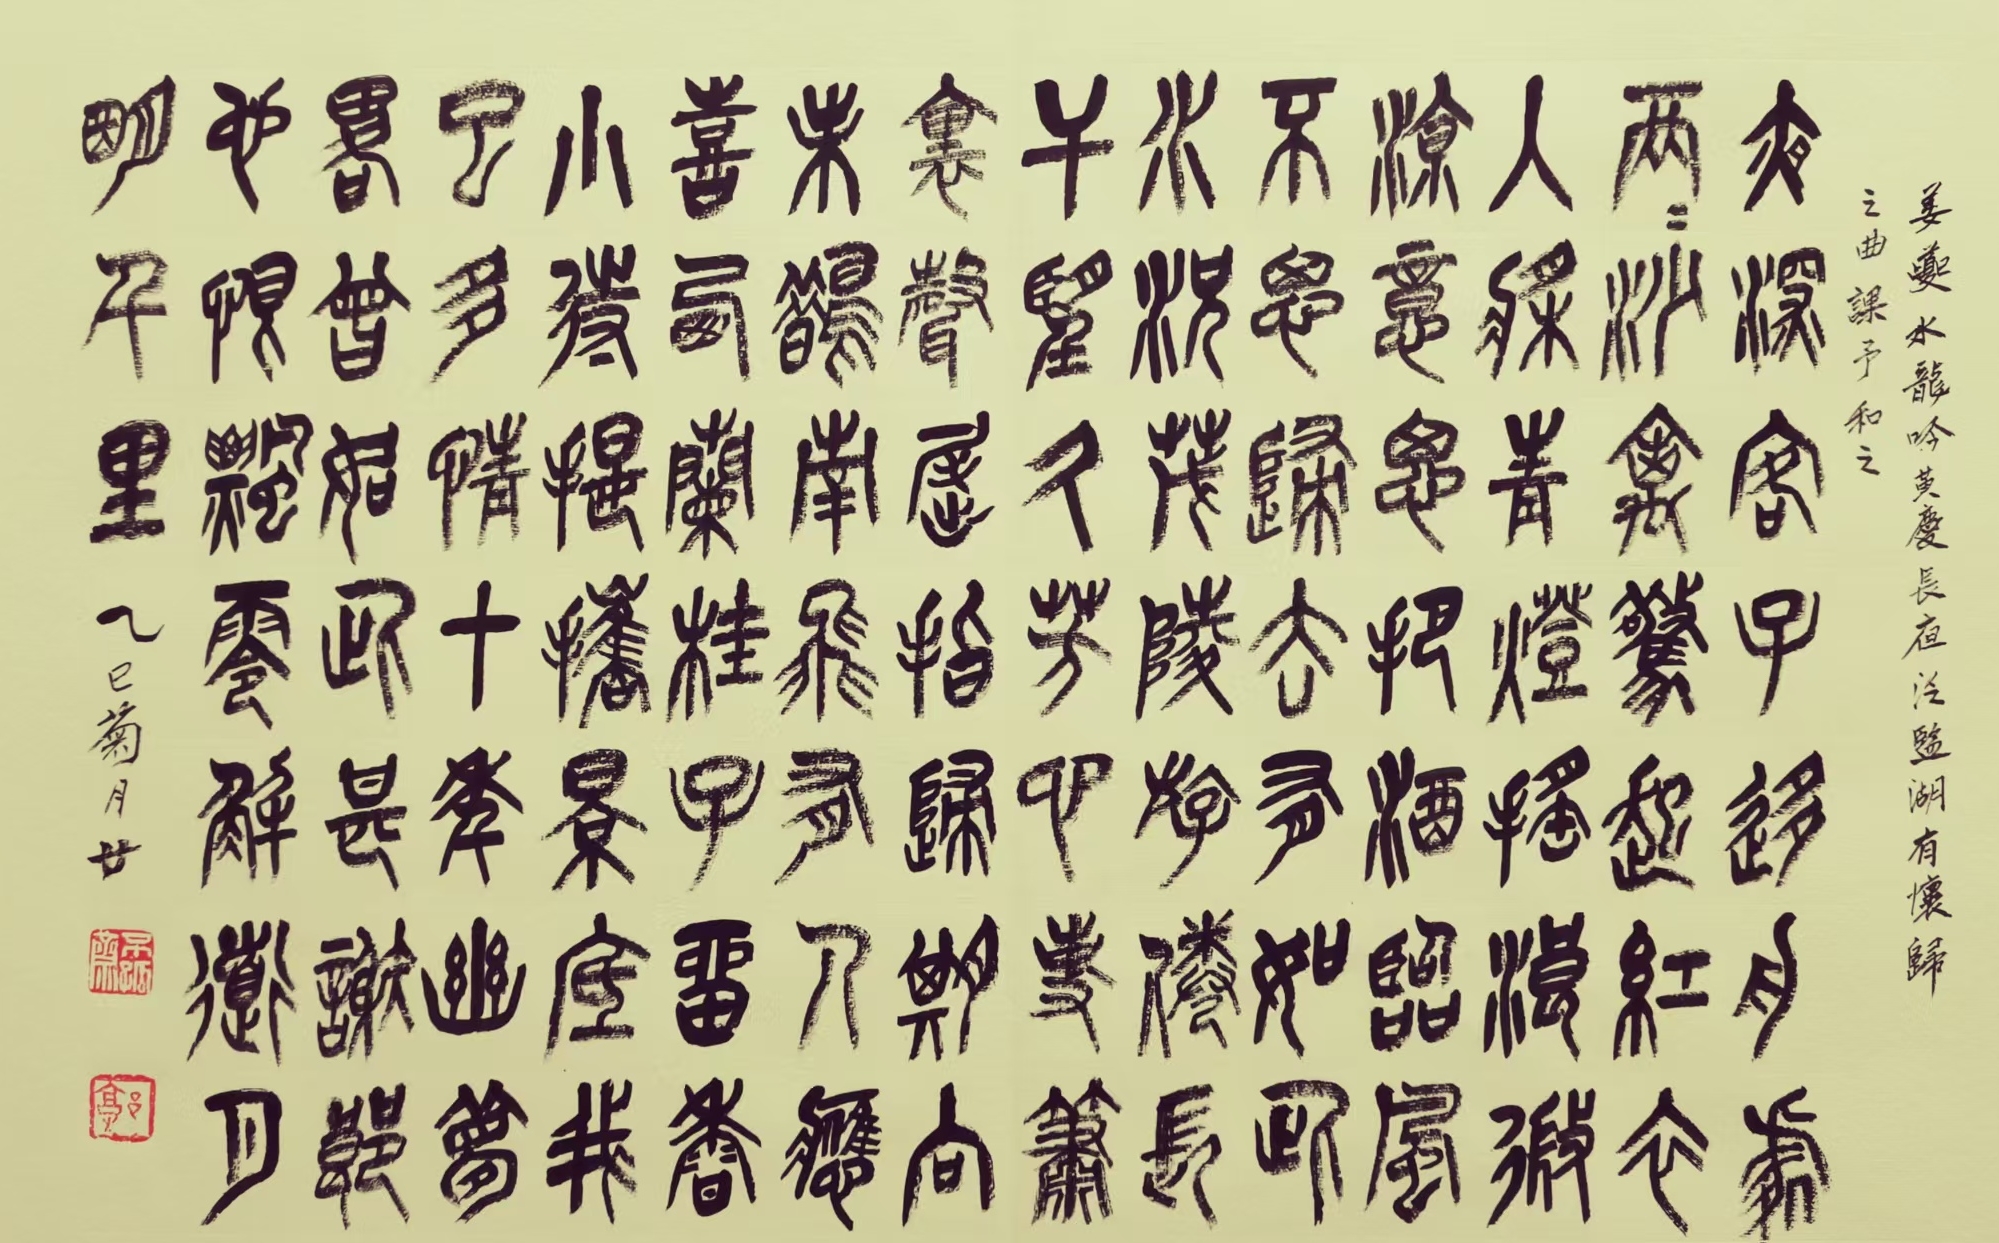 姜夔水龍吟黃慶長夜泛監湖有懷歸
之曲課予和之
夜深客子移舟處
两〻沙禽驚起紅衣
入槳青燈搖浪微
涼意思把酒臨風
不思歸去有如此
水況茂陵游倦長
干望久芳心事簫
裏聲屈指歸期尚
未鵲南飛有人應
喜畫蘭桂子留香
小待提攜景底我
已多情十年幽夢
畧曾如此甚謝郎
也恨飄零解道月
明千里 乙巳菊月廿
郭